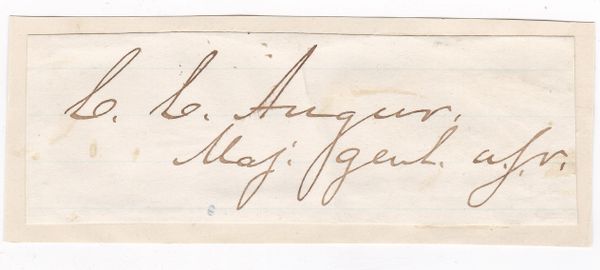 C. C. Augur.
Maj. genl. u.s.v.